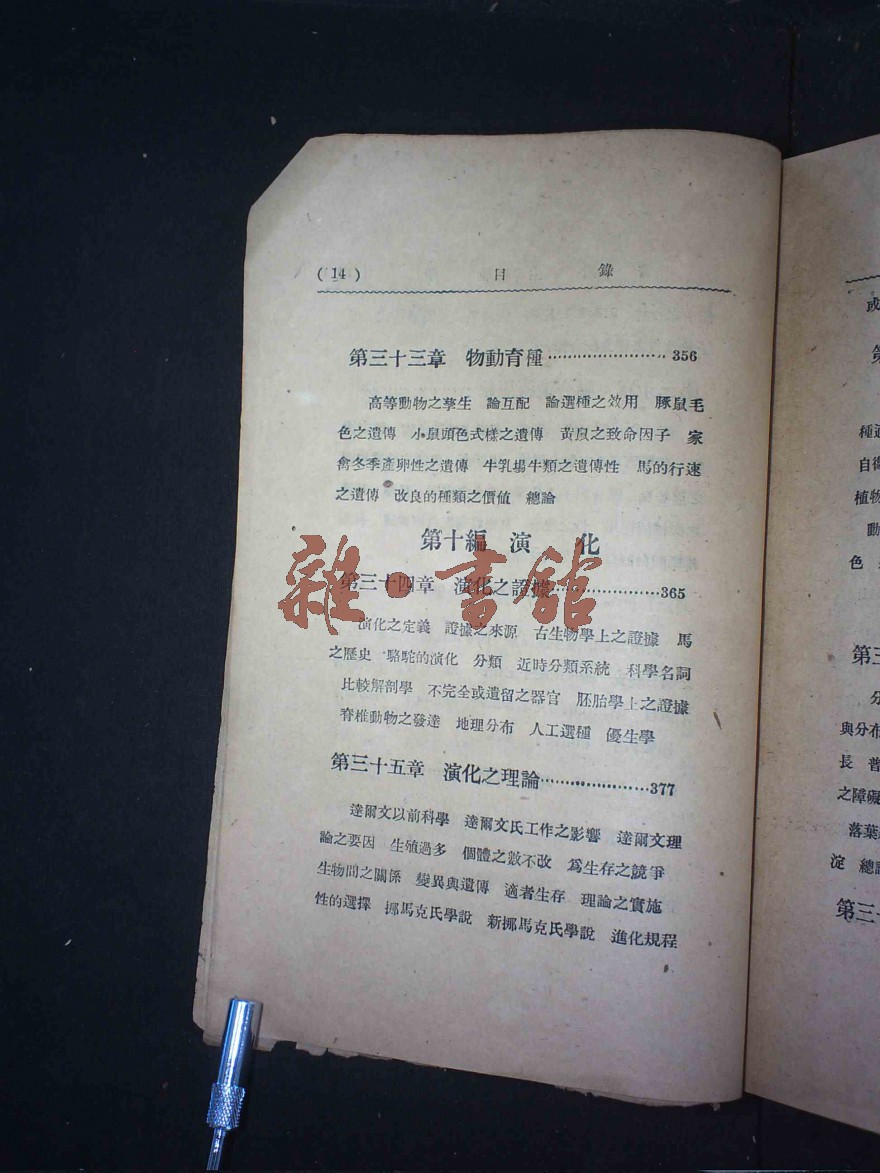 (14) 目 錄
第三十三章 物動育種……………………356
高等動物之孳生 論互配 論選種之效用 豚鼠毛
色之遺傳 小鼠頭色式樣之遺傳 黃鼠之致命因子 家
禽冬季產卵性之遺傳 牛乳場牛類之遺傳性 馬的行速
之遺傳 改良的種類之價値 總論
第十編 演 化
第三十四章 演化之證據……………………365
演化之定義 證據之來源 古生物學上之證據 馬
之歷史 駱駝的演化 分類 近時分類系統 科學名詞
比較解剖學 不完全或遺留之器官 胚胎學上之證據
脊椎動物之發達 地理分布 人工選種 優生學
第三十五章 演化之理論……………………377
達爾文以前科學 達爾文氏工作之影響 達爾文理
論之要因 生殖過多 個體之數不改 爲生存之競爭
生物間之關係 變異與遺傳 適者生存 理論之實施
性的選擇 挪馬克氏學說 新挪馬克氏學說 進化規程
雜·書館
或
第
種適
自衛
植物
動
色
第三
分
與分布
長 普
之障礙
落葉
淀 總論
第三十